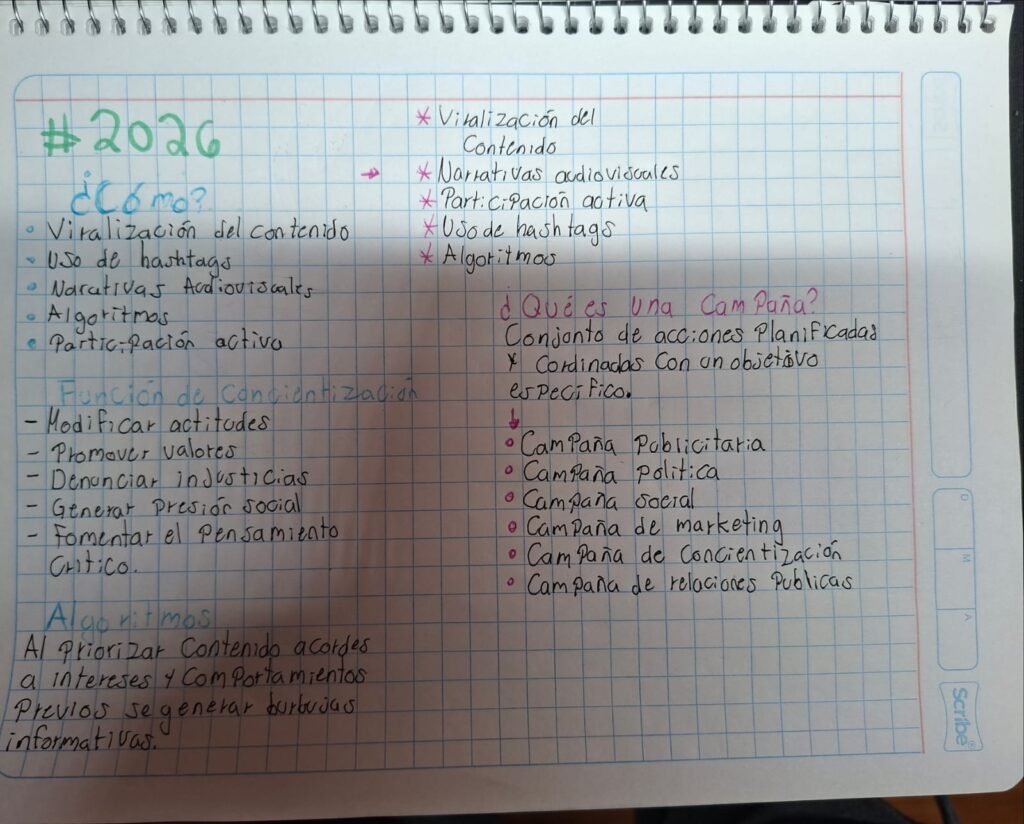 #2026
¿Cómo?
• Viralización del contenido
• Uso de hashtags
• Narativas Audioviscales
• Algoritmos
• Participación activa
Función de Concientización
- Modificar actitudes
- Promover valores
- Denunciar injusticias
- Generar Presión social
- Fomentar el Pensamiento
Critico.
Algoritmos
Al Priorizar Contenido acordes
a intereses y comportamientos
Previos se generar burbujas
informativas.
* Viralización del
Contenido
→ * Narrativas audiovisuales
* Participación activa
* Uso de hashtags
* Algoritmos
¿Qué es una Campaña?
Conjunto de acciones Planificadas
y Cordinadas con un objetivo
especifico.
↓
• Campaña Publicitaria
• Campaña Politica
• Campaña social
• Campaña de marketing
• Campaña de Concientización
• Campaña de relaciones Publicas
D
M
A
Scribe®